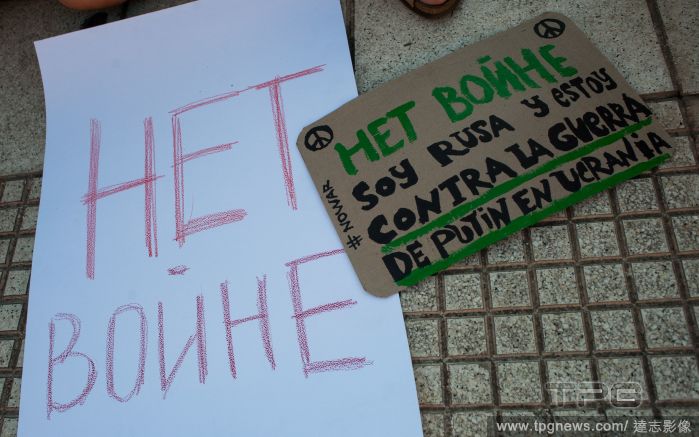 НЕТ
ВОЙНЕ
НЕТ ВОЙНЕ
SOY RUSA Y ESTOY
CONTRA LA GUERRA
DE PUTIN EN UCRANIA
#NOWAR
TPG
www.tpgnews.com/ 達志影像